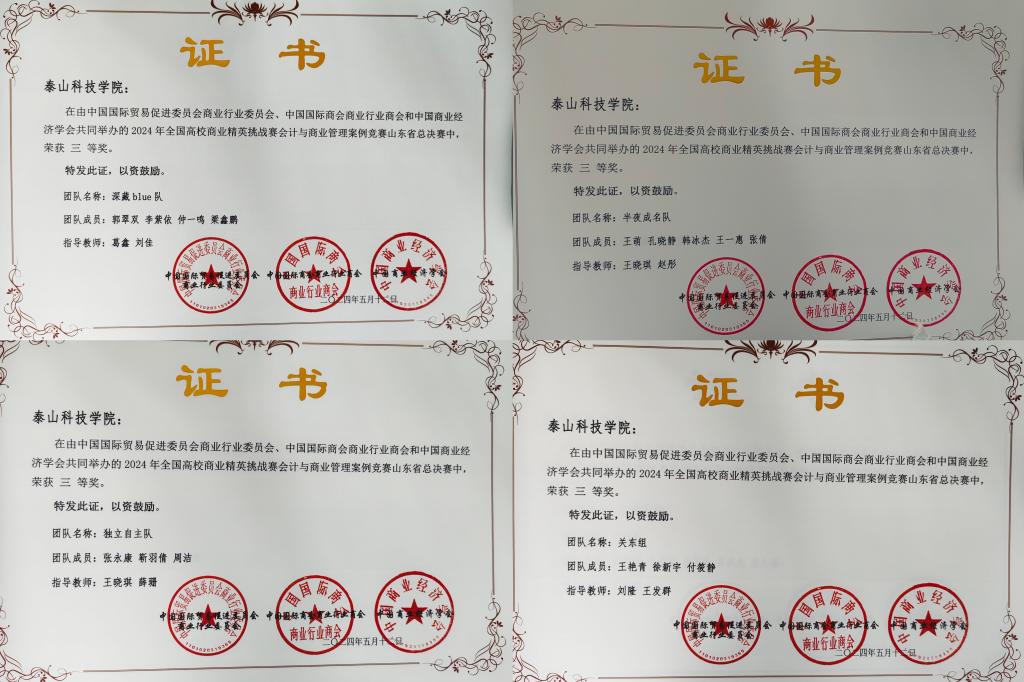 证 书
泰山科技学院：
在由中国国际贸易促进委员会商业行业委员会、中国国际商会商业行业商会和中国商业经
济学会共同举办的 2024 年全国高校商业精英挑战赛会计与商业管理案例竞赛山东省总决赛中，
荣获 三 等奖。
特发此证，以资鼓励。
团队名称：深藏 blue 队
团队成员：郭翠双 李紫依 仲一鸣 梁鑫鹏
指导教师：葛鑫 刘佳
中国国际贸易促进委员会 中国国际商会商业行业商会 中国商业经济学会
商业行业委员会
商业行业商会
二〇二四年五月十二日
证 书
泰山科技学院：
在由中国国际贸易促进委员会商业行业委员会、中国国际商会商业行业商会和中国商业经
济学会共同举办的 2024 年全国高校商业精英挑战赛会计与商业管理案例竞赛山东省总决赛中，
荣获 三 等奖。
特发此证，以资鼓励。
团队名称：半夜成名队
团队成员：王萌 孔晓静 韩冰杰 王一惠 张倩
指导教师：王晓琪 赵彤
中国国际贸易促进委员会 中国国际商会商业行业商会 中国商业经济学会
商业行业委员会
商业行业商会
二〇二四年五月十二日
证 书
泰山科技学院：
在由中国国际贸易促进委员会商业行业委员会、中国国际商会商业行业商会和中国商业经
济学会共同举办的 2024 年全国高校商业精英挑战赛会计与商业管理案例竞赛山东省总决赛中，
荣获 三 等奖。
特发此证，以资鼓励。
团队名称：独立自主队
团队成员：张永康 靳羽倩 周洁
指导教师：王晓琪 薛珊
中国国际贸易促进委员会 中国国际商会商业行业商会 中国商业经济学会
商业行业委员会
商业行业商会
二〇二四年五月十二日
证 书
泰山科技学院：
在由中国国际贸易促进委员会商业行业委员会、中国国际商会商业行业商会和中国商业经
济学会共同举办的 2024 年全国高校商业精英挑战赛会计与商业管理案例竞赛山东省总决赛中，
荣获 三 等奖。
特发此证，以资鼓励。
团队名称：关东组
团队成员：王艳青 徐新宇 付筱静
指导教师：刘隆 王发群
中国国际贸易促进委员会 中国国际商会商业行业商会 中国商业经济学会
商业行业委员会
商业行业商会
二〇二四年五月十二日